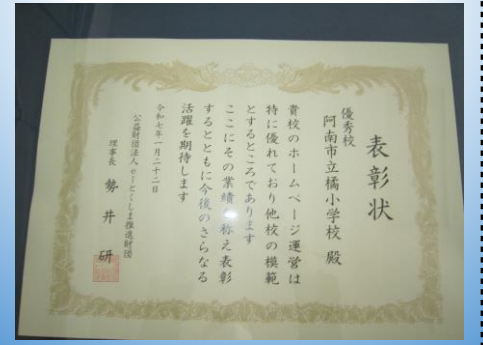 表彰状
優秀校
阿南市立橘小学校 殿
貴校のホームページ運営は
特に優れており他校の模範
とするところであります
ここにその業績を称え表彰
するとともに今後のさらなる
活躍を期待します
令和七年一月二十二日
公益財団法人 e-とくしま推進財団
理事長 勢井 研